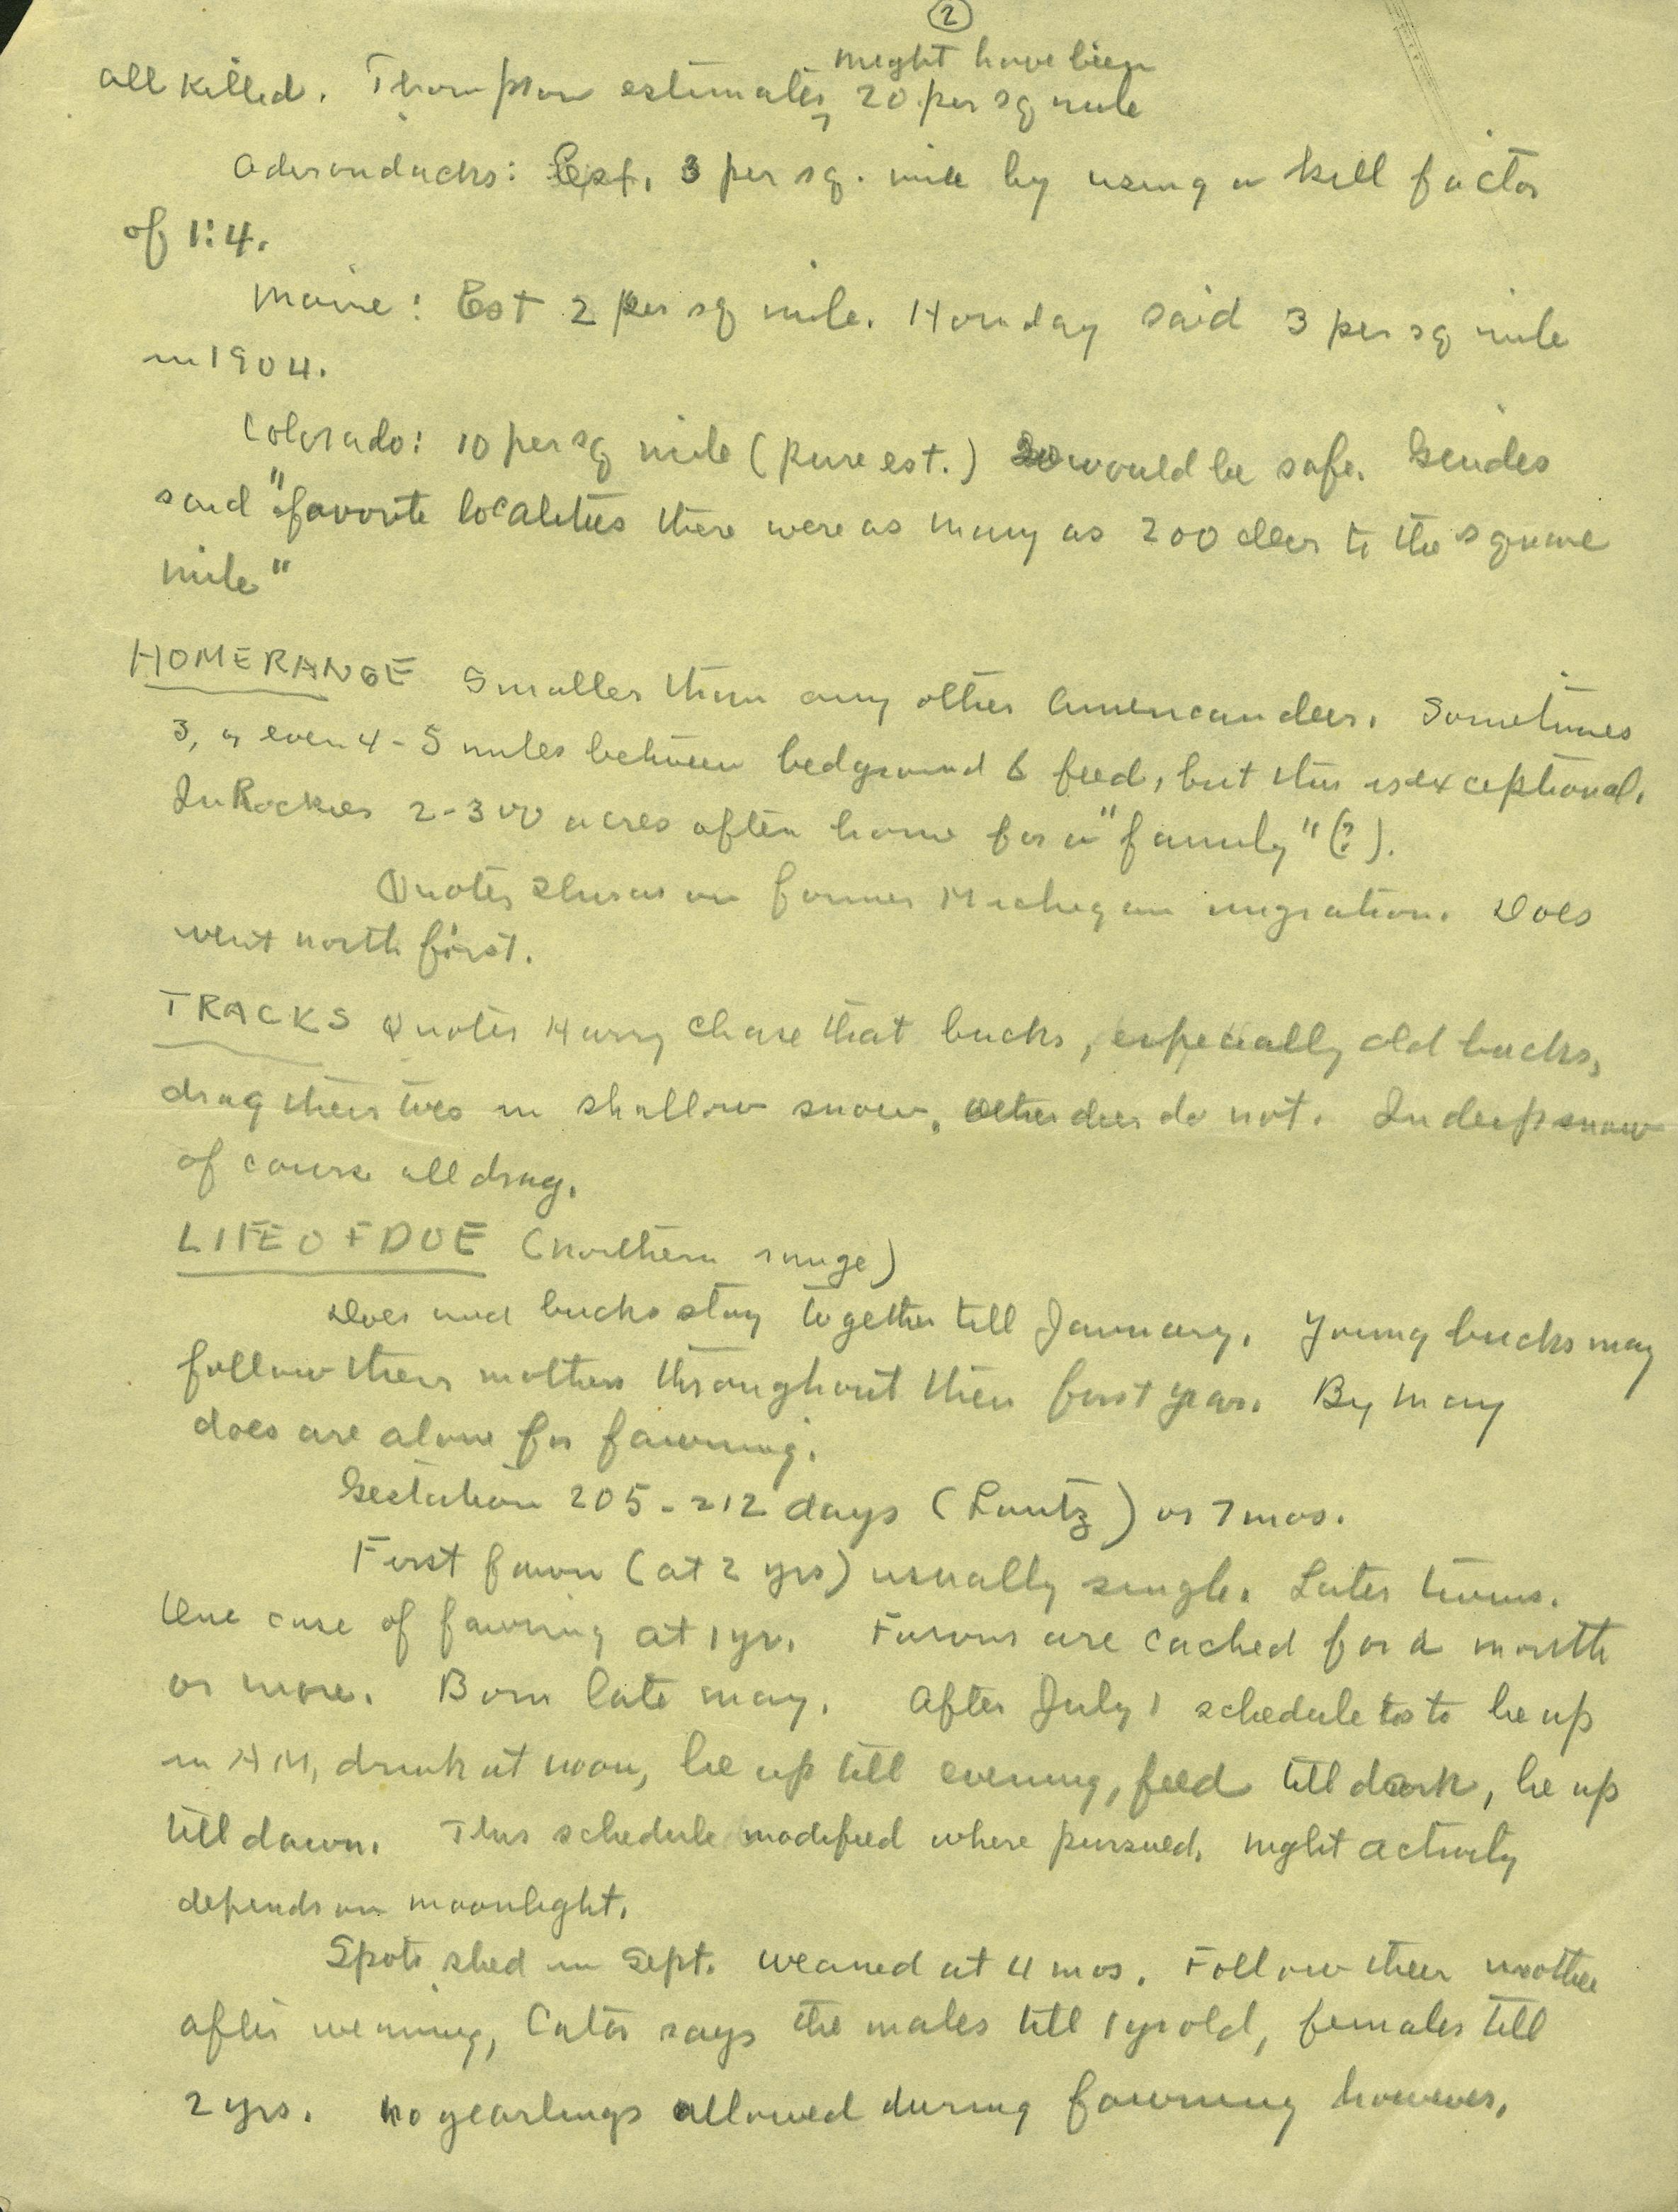 ②
might have been
all killed. Thompson estimates, 20 per sq mile
Adirondacks: Est. 3 per sq. mile by using a kill factor
of 1:4.
Maine: Est 2 per sq mile. Hornaday said 3 per sq mile
in 1904.
Colorado: 10 per sq mile (pure est.) 20 would be safe. Guides
said "favorite localities there were as many as 200 deer to the square
mile"
HOME RANGE Smaller than any other American deer. Sometimes
3, or even 4-5 miles between bedground & feed, but this is exceptional.
In Rockies 2-300 acres often home for a "family" (?).
Quotes Shiras on former Michigan migration. Does
went north first.
TRACKS Quotes Harry Chase that bucks, especially old bucks,
drag their toes in shallow snow, other deer do not. In deep snow
of course all drag.
LIFE OF DOE (Northern range)
Does and bucks stay together till January. Young bucks may
follow their mothers throughout their first year. By May
does are alone for fawning.
Gestation 205-212 days (Lantz) or 7 mos.
First fawn (at 2 yrs) usually single. Later twins.
One case of fawning at 1 yr. Fawns are cached for a month
or more. Born late May. After July 1 schedule is to lie up
in AM, drink at noon, lie up till evening, feed till dark, lie up
till dawn. This schedule modified where pursued. Night activity
depends on moonlight.
Spots shed in Sept. Weaned at 4 mos. Follow their mother
after weaning, Caton says the males till 1 yr old, females till
2 yrs. No yearlings allowed during fawning however.